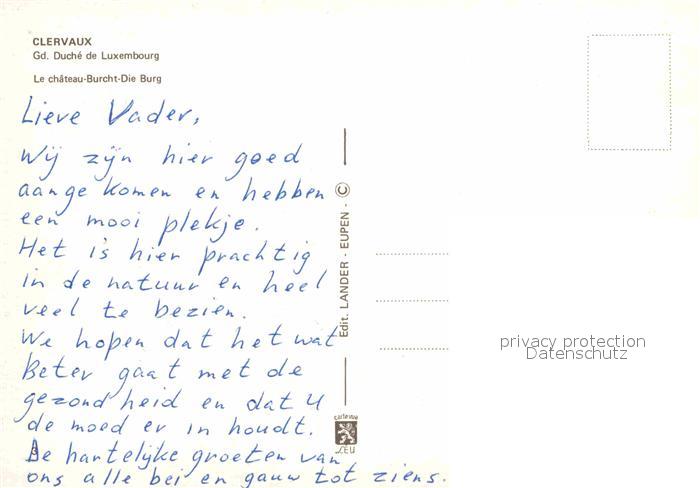 CLERVAUX
Gd. Duché de Luxembourg
Le château-Burcht-Die Burg
Lieve Vader,
Wij zijn hier goed
aange komen en hebben
een mooi plekje.
Het is hier prachtig
in de natuur en heel
veel te bezien.
We hopen dat het wat
Beter gaat met de
gezond heid en dat U
de moed er in houdt.
De hartelijke groeten van
ons alle bei en gauw tot ziens.
Edit. LANDER - EUPEN - ©
carte vue
privacy protection
Datenschutz